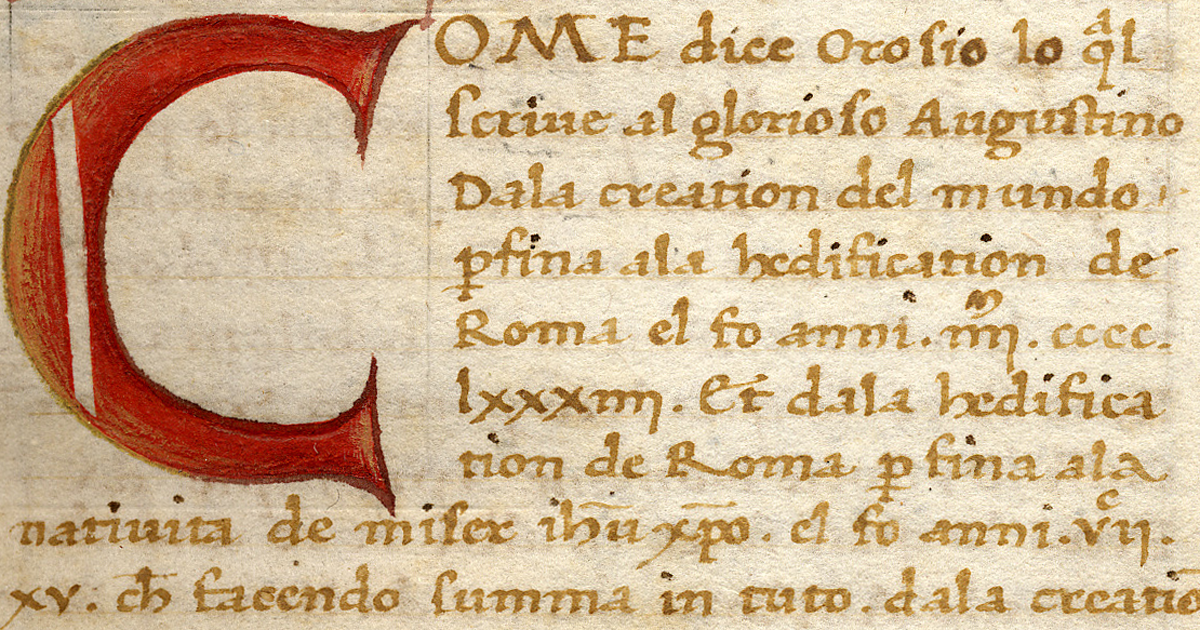 COME dice Orosio lo q̃l
scriue al glorioso Augustino
Dala creation del mundo
ꝑfina ala hedification de
Roma el fo anni. iiijᵐ. cccc.
lxxxiiij. Et dala hedifica
tion de Roma ꝑ fina ala
natiuita de miser ihū xp̄o. el fo anni. vᶜij.
xv: ch̄ facendo summa in tuto. dala creatiō